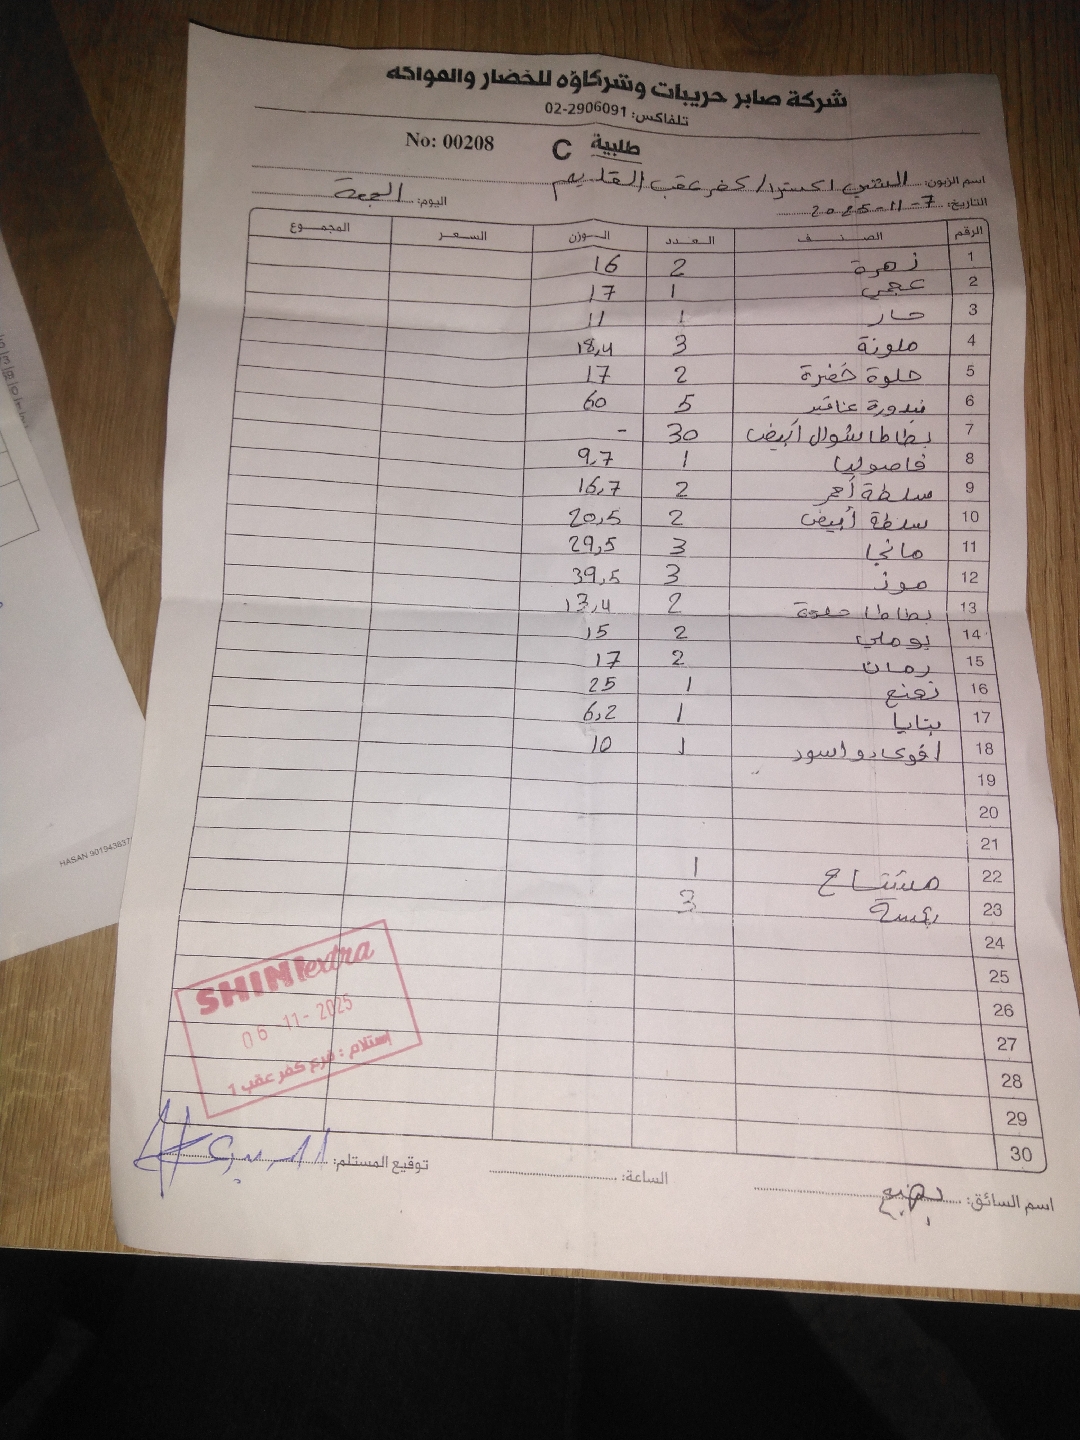 شركة صابر حريبات وشركاؤه للخضار والفواكه
تلفاكس: 02-2906091
طلبية C No: 00208
اسم الزبون: الشني اكسترا/ كفر عقب القديم
التاريخ: 7-11-2025 اليوم: الجمعة
الرقم الصنف العدد الوزن السعر المجموع
1 زهرة 2 16
2 عجمي 1 17
3 حار 1 11
4 ملونة 3 18,4
5 حلوة خضرة 2 17
6 بندورة عناقيد 5 60
7 بطاطا شوال أبيض 30 -
8 فاصوليا 1 9,7
9 سلطة أحمر 2 16,7
10 سلطة أبيض 2 20,5
11 مانجا 3 29,5
12 موز 3 39,5
13 بطاطا حلوة 2 13,4
14 بوملي 2 15
15 رمان 2 17
16 نعنع 1 25
17 بتايا 1 6,2
18 افوكادو اسود 1 10
19
20
21
22 مشتاح 1
23 3
24
25
26
27
28
29
30
SHINI extra
06-11-2025
إستلام: فرع كفر عقب 1
اسم السائق: الساعة: توقيع المستلم:
HASAN